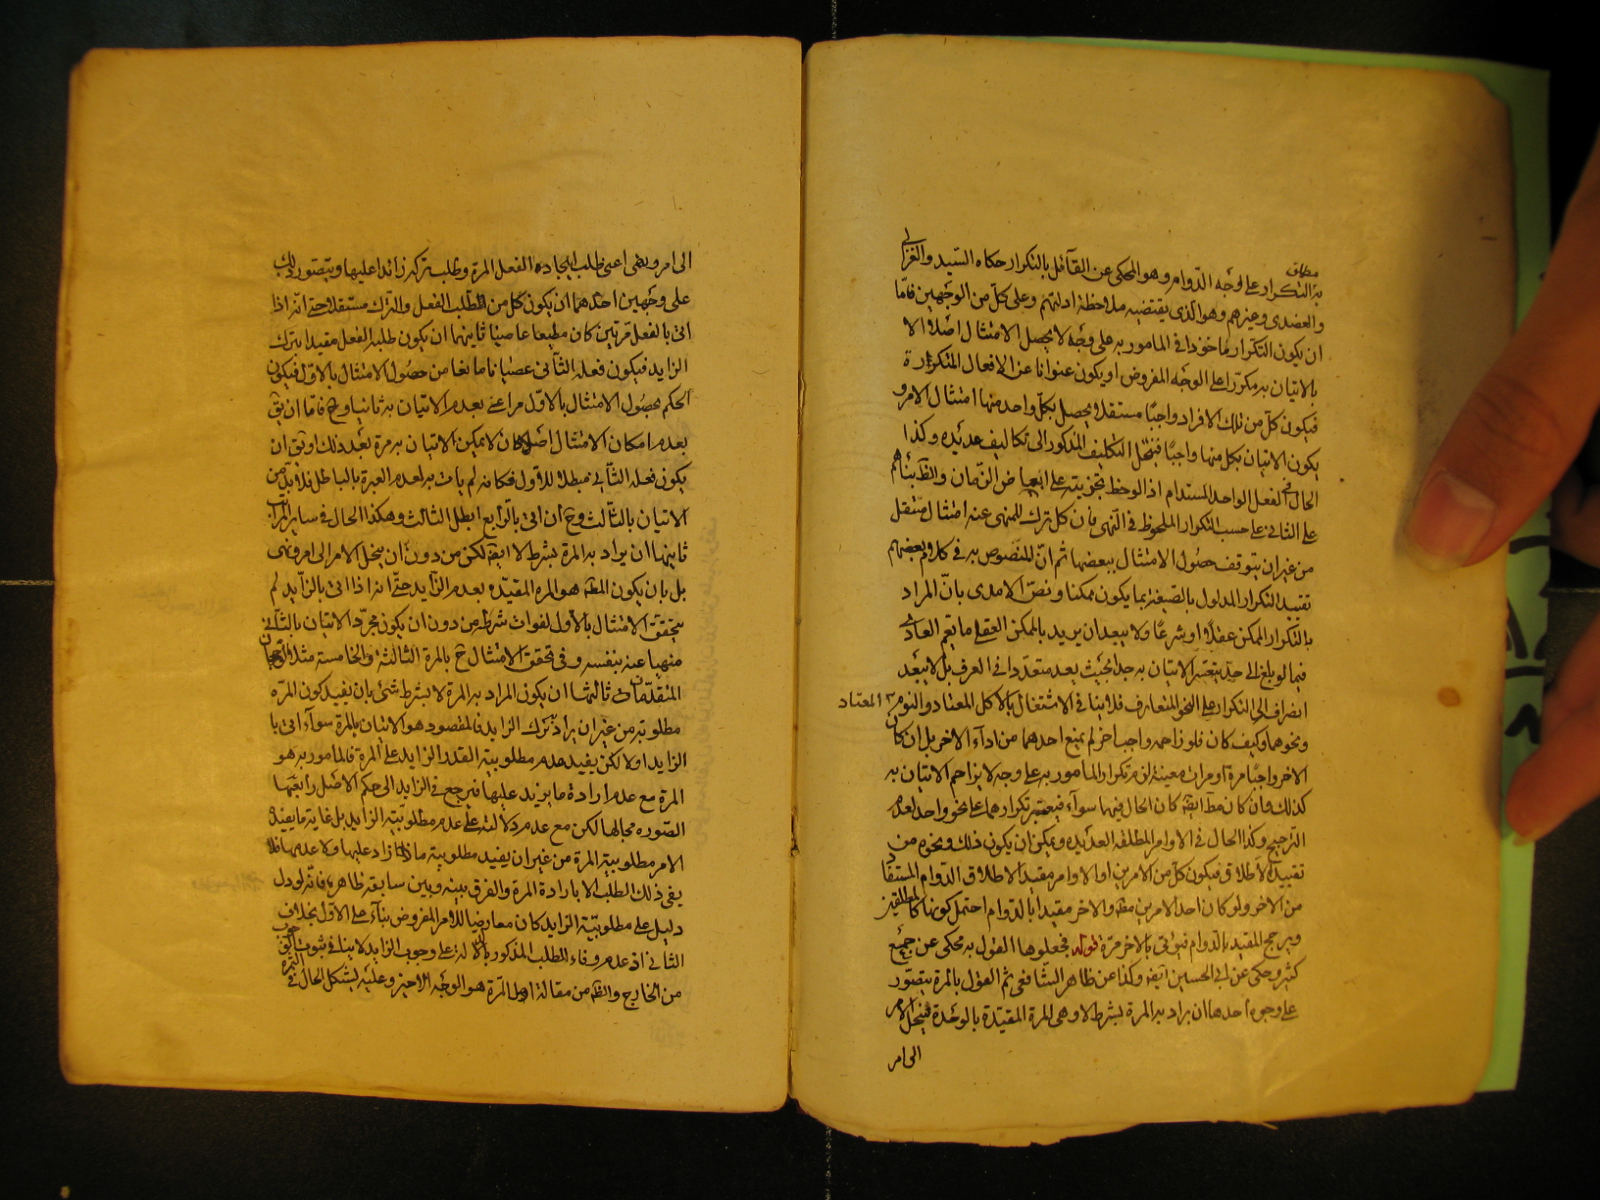 مطلق
به التكرار على وجه الدوام وهو المحكى عن القائل بالتكرار حكاه السيد والغزالى
والعضدى وغيرهم وهو الذى يقتضيه ملاحظة ادلتهم وعلى كل من الوجهين فامّا
ان يكون التكرار ماخوذا فى المامور به على وجه لا يحصل الامتثال اصلا الا
بالاتيان به مكررا على الوجه المفروض او يكون عنوانا عن الافعال المتكررة
فيكون كل من تلك الافراد واجبا مستقلا يحصل بكل واحد منها امتثال الامر و
يكون الاتيان بكل منها واجبا فينحل التكليف المذكور الى تكاليف عديدة وكذا
الحال فى الفعل الواحد المستدام اذ الوحظ تجزيته على ابعاض الزمان والظ بنائهم
على الثانى على حسب التكرار الملحوظ فى النهى فان كل ترك للمنهى عنه امتثال مستقل
من غير ان يتوقف حصول الامتثال ببعضها ثم انّ المنصوص به فى كلام بعضهم
تقييد التكرار المدلول بالصيغة بما يكون ممكنا ونصّ الامدى بانّ المراد
بالتكرار الممكن عقلا او شرعا ولا يبعد ان يريد بالممكن العقلى ما يعم العادى
فيما لو بلغ الى حد يتعسر الاتيان به جدا بحيث يعد متعذرا فى العرف بل لا يبعد
انصراف الى التكرار على النحو المتعارف فلا ينافى الاشتغال بالاكل المعتاد والنوم المعتاد
ونحوهما وكيف كان فلو زاحمه واجب اخر لم يمنع احدهما من اداء الاخر بل ان كان
الاخر واجبا مرة او مرات معينة لزم تكرار المامور به على وجه لا يزاحم الاتيان به
كذلك وان كان مط ايضا كان الحال فيهما سواء فيعتبر تكرارهما على نحو واحد لعدم
الترجيح وكذا الحال فى الاوامر المطلقة العديدة ويمكن ان يكون ذلك ونحوه من
تقييد الاطلاق فيكون كل من الامرين او الاوامر مقيدا لاطلاق الدوام المستفاد
من الاخر ولو كان احد الامرين مط والاخر مقيدا بالدوام احتمل كونهما كالمطلقين
ويرجح المقيد بالدوام فيؤتى بالاخر مرة قوله فجعلوها القول به محكى عن جمع
كثير وحكى عن ابى الحسين ايضا وكذا عن ظاهر الشافعى ثم القول بالمرة يتصوّر
على وجوه احدها ان يراد به المرة بشرط لا وهى المرة المقيدة بالوحدة فينحل الامر
الى امر
الى امر ونهى اعنى طلب ايجاده الفعل المرة وطلب تركه زائدا عليها ويتصور ذلك
على وجهين احدهما ان يكون كل من الطلب الفعل والترك مستقلا حتى انّه اذا
اتى بالفعل مرتين كان مطيعا عاصيا ثانيهما ان يكون طلبه للفعل مقيدا بترك
الزايد فيكون فعله الثانى عصيانا مانعا من حصول الامتثال بالاول فيكون
الحكم بحصول الامتثال بالاول مراعى بعدم الاتيان به ثانيا وح فامّا ان يق
بعدم امكان الامتثال اصلا كان لا يمكن الاتيان به مرة بعد ذلك او يق ان
يكون فعله الثانى مبطلا للاول فكانه لم يات به لعدم العبرة بالباطل فلا بدّ من
الاتيان بالثالث وح ان اتى بالرابع ابطل الثالث وهكذا الحال فى ساير المراتب
ثانيها ان يراد به المرة بشرط لا ايضا لكن من دون ان ينحل الامر الى امر ونهى
بل بان يكون المط هو المرة المقيدة بعدم الزايد حتى انه اذا اتى بالزايد لم
يتحقق الامتثال بالاول لفوات شرطه من دون ان يكون مجرّد الاتيان بالثانى
منهيا عنه بنفسه وفى تحقق الامتثال ح بالمرة الثالثة والخامسة مثلا الوجهان
المتقدمان ثالثها ان يكون المراد به المرة لا بشرط شئ بان يفيد كون المرّة
مطلوبة من غير ان يراد ترك الزايد فالمقصود هو الاتيان بالمرة سواء اتى با
الزايد او لا لكن يفيد عدم مطلوبية القدر الزايد على المرة فالمامور به هو
المرة مع عدم ارادة ما يزيد عليها فيرجع فى الزايد الى حكم الاصل رابعها
الصورة بحالها لكن مع عدم دلالته على عدم مطلوبيّة الزايد بل غاية ما يفيده
الامر مطلوبية المرة من غير ان يفيد مطلوبية ما زاد عليها ولا عدمها فلا
يفى ذلك الطلب الا بارادة المرة والفرق بينه وبين سابقه ظاهر فانّه لو دل
دليل على مطلوبيّة الزايد كان معارضا للامر المفروض بناء على الاوّل بخلاف
الثانى اذ عدم وفاء الطلب المذكور بالدلالة على وجوب الزايد لا ينافى ثبوت الوجوب
من الخارج والظ من مقالة اهل المرّة هو الوجه الاخير وعليه يشكل الحال فى الثمرة